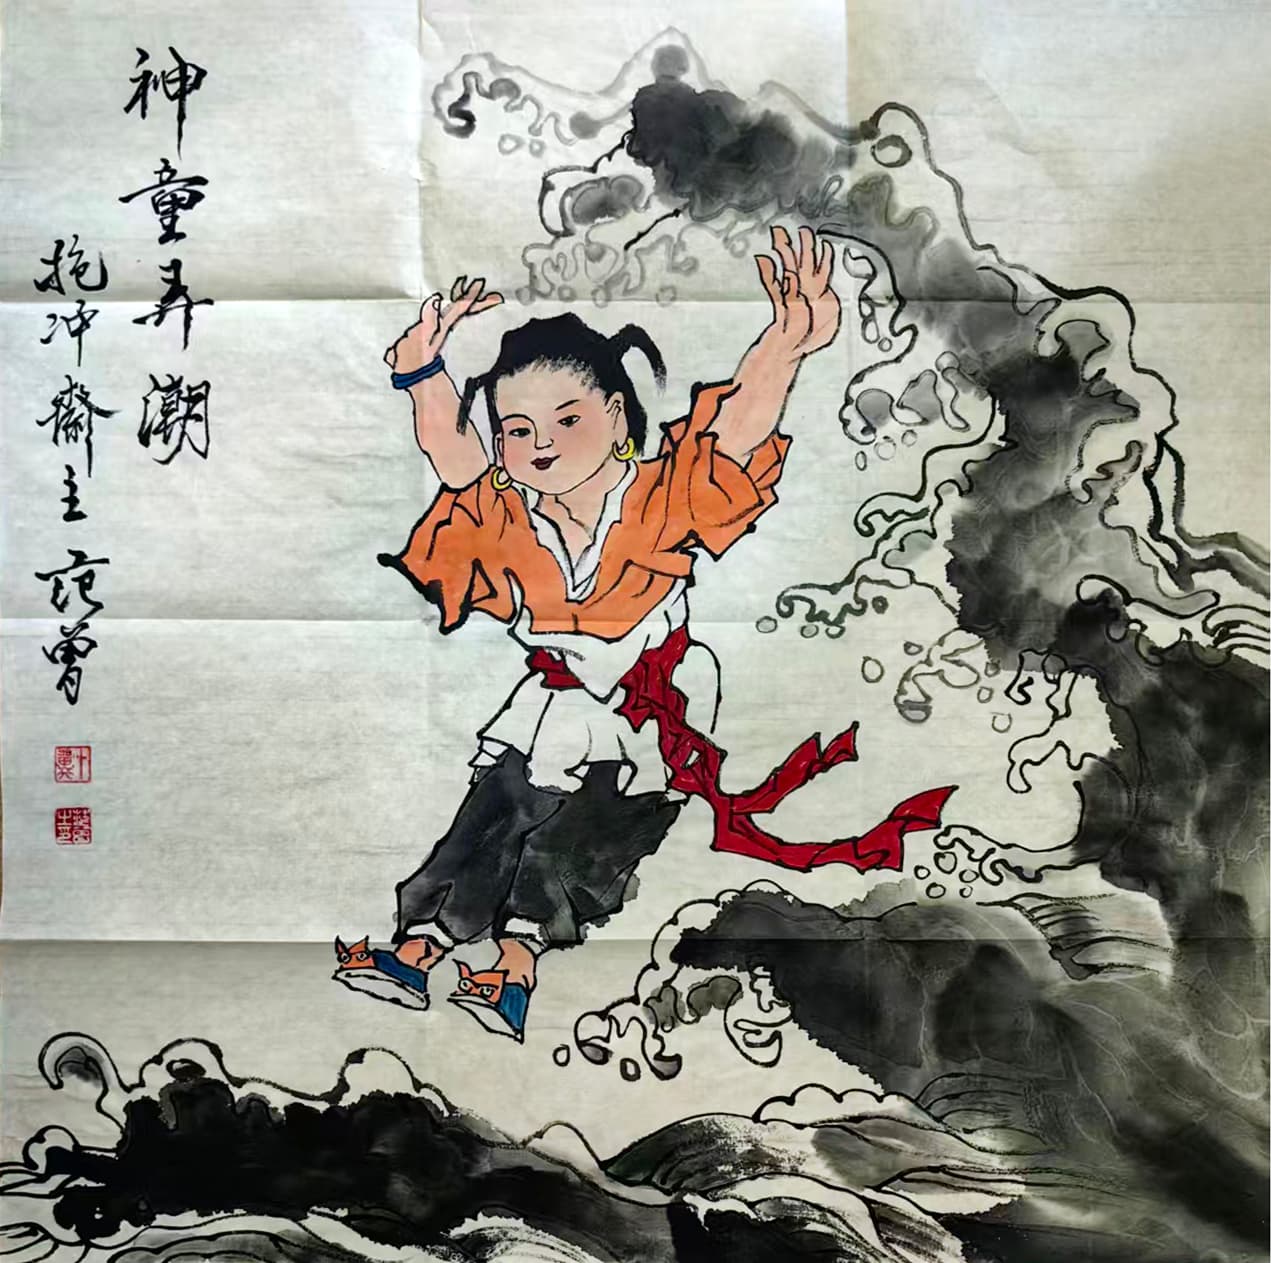 神童弄潮
抱冲斋主范曾